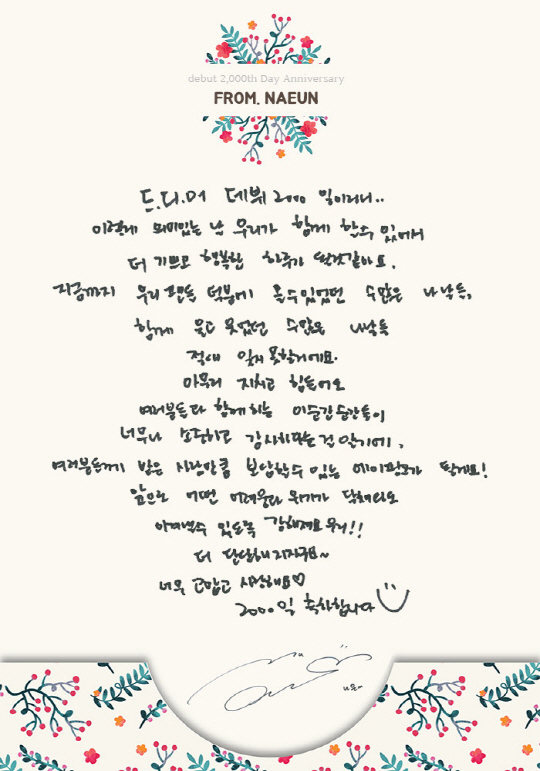 debut 2,000th Day Anniversary
FROM. NAEUN
드.디.어 데뷔 2000 일이라니..
이렇게 의미있는 날 우리가 함께 할수 있어서
더 기쁘고 행복한 하루가 될것같아요.
지금까지 우리 팬들 덕분에 올수있었던 수많은 나날들,
함께 웃고 웃었던 수많은 나날들
절대 잊지 못할거에요.
아무리 지치고 힘들어도
여러분들과 함께하는 이순간순간들이
너무나 소중하고 감사하다는걸 알기에,
여러분들께 받은 사랑만큼 보답할수 있는 에이핑크가 될게요!
앞으로 어떤 어려움과 위기가 닥쳐와도
이겨낼수 있도록 강해져요 우리!!
더 단단해지자구요~
너무 고맙고 사랑해요♡
2000일 축하합니다